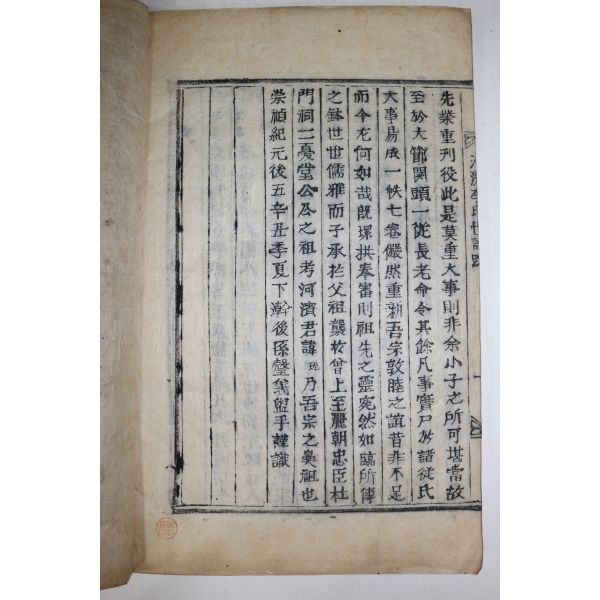 先業重刊役此是莫重大事則非余小子之所可堪當故
至於大節関頭一從長老命令其餘凡事實尸於諸從氏
大事易成一帙七卷儼然重新吾宗敦睦之誼昔非不足
而今尤何如哉旣環拱奉審則祖先之靈宛然如臨所傳
之鉢世世儒雅而子承於父祖襲於曾上至麗朝忠臣杜
門洞二憂堂公公之祖考河濱君諱 乃吾宗之奠祖也
崇禎紀元後五辛丑季夏下澣後孫 義盥手謹識
李氏世譜